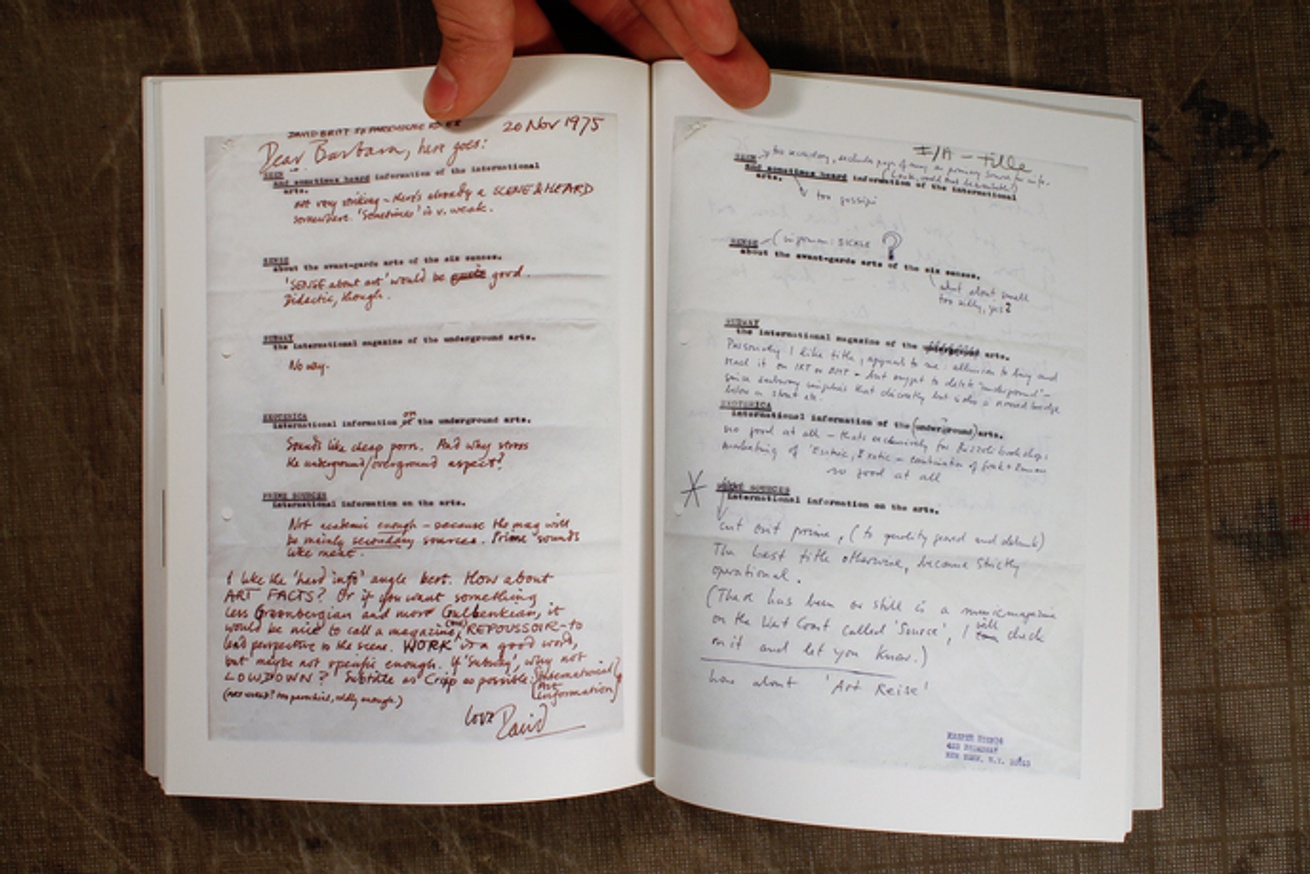 DAVID BRITT
20 Nov 1975
Dear Barbara, here goes:
SEEN
And sometimes heard information of the international
arts.
not very striking – there's already a SCENE & HEARD
somewhere. 'Sometimes' is v. weak.
SENSE
about the avant-garde arts of the six senses.
'SENSE about art' would be quite good.
Didactic, though.
SUBWAY
the international magazine of the underground arts.
No way.
EXOTERICA
on
international information of the underground arts.
Sounds like cheap porn. And why stress
the underground/overground aspect?
PRIME SOURCES
international information on the arts.
Not academic enough – because the mag will
be mainly secondary sources. Prime sounds
like meat.
I like the 'hard info' angle best. How about
ART FACTS? Or if you want something
less Greenbergian and more Gulbenkian, it
would be nice to call a magazine REPOUSSOIR – to
lend perspective to the scene. WORK is a good word,
but maybe not specific enough. If 'Subway', why not
LOWDOWN? Subtitle as crisp as possible: International
Art
Information
(not news? too parochial, oddly enough)
love David
I/A – Title
SEEN too secondary, excludes
And sometimes heard information of the international
arts.
too gossipi
SENSE (in german: SICKLE ?
about the avant-garde arts of the six senses.
what about smell
too silly, yes?
SUBWAY
the international magazine of the underground arts.
Personally I like title, appeals to me:
read it on IRT or BMT – but
EXOTERICA
international information of the (underground) arts.
no good at all – thats exclusively for Rizzoli bookshop:
marketing of
no good at all
PRIME SOURCES
international information on the arts.
cut out prime, (to
The best title otherwise, because strictly
operational.
(There has been or still is a music magazine
on the West Coast called 'Source', I will check
on it and let you know.)
how about 'Art Reise'
KASPER
BROADWAY
NEW YORK, N.Y. 10013